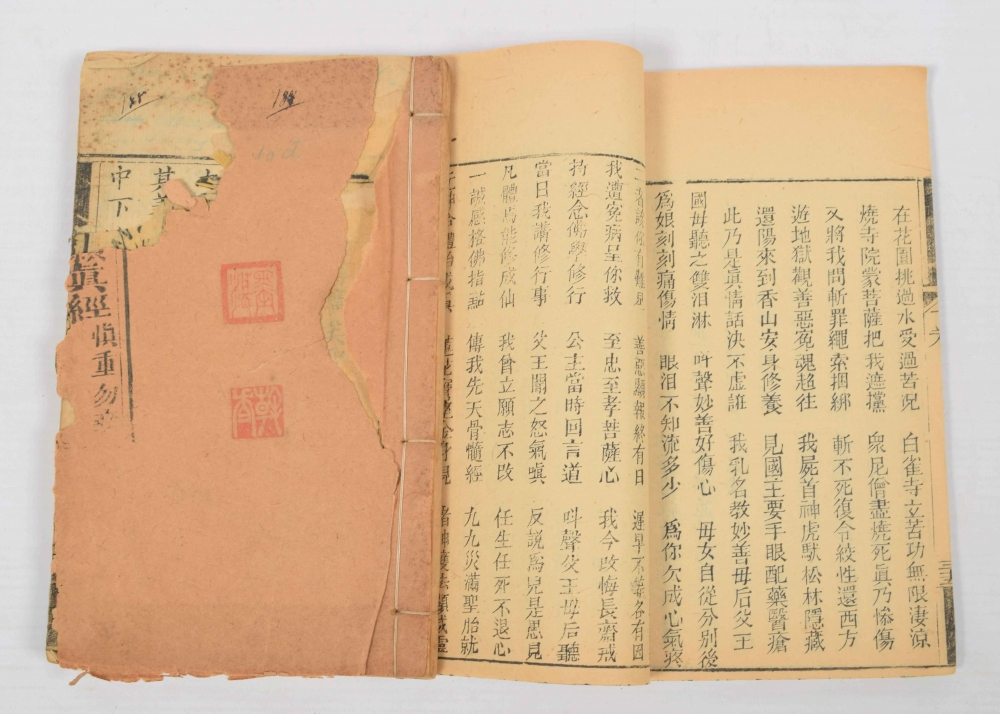 在花園挑過水受過苦況 白雀寺立苦功無限淒涼
燒寺院蒙菩薩把我遮攩 衆尼僧盡燒死眞乃慘傷
又將我問斬罪繩索捆綁 斬不死復令絞性還西方
遊地獄觀善惡寃魂超往 我屍首神虎馱松林隱藏
還陽來到香山安身修養 見國主要手眼配藥醫瘡
此乃是眞情話決不虛誑 我乳名教妙善毋后父王
國毋聽之雙泪淋 呌聲妙善好傷心 毋女自從分別後
爲娘刻刻痛傷情 眼泪不知流多少 爲你欠成心氣疼
善惡 報終有日 遲早不 有因
我遭寃病呈你救 至忠至孝菩薩心 我今改悔長齋戒
持經念佛學修行 公主當時回言道 呌聲父王毋后聽
當日我講修行事 父王聞之怒氣嗔 反說爲兒是愚見
凡體焉能修成仙 我曾立願志不改 任生任死不退心
一誠感格佛指點 傳我先天骨髓經 九九災滿聖胎就
188
188
其
中下
眞經
慎重勿